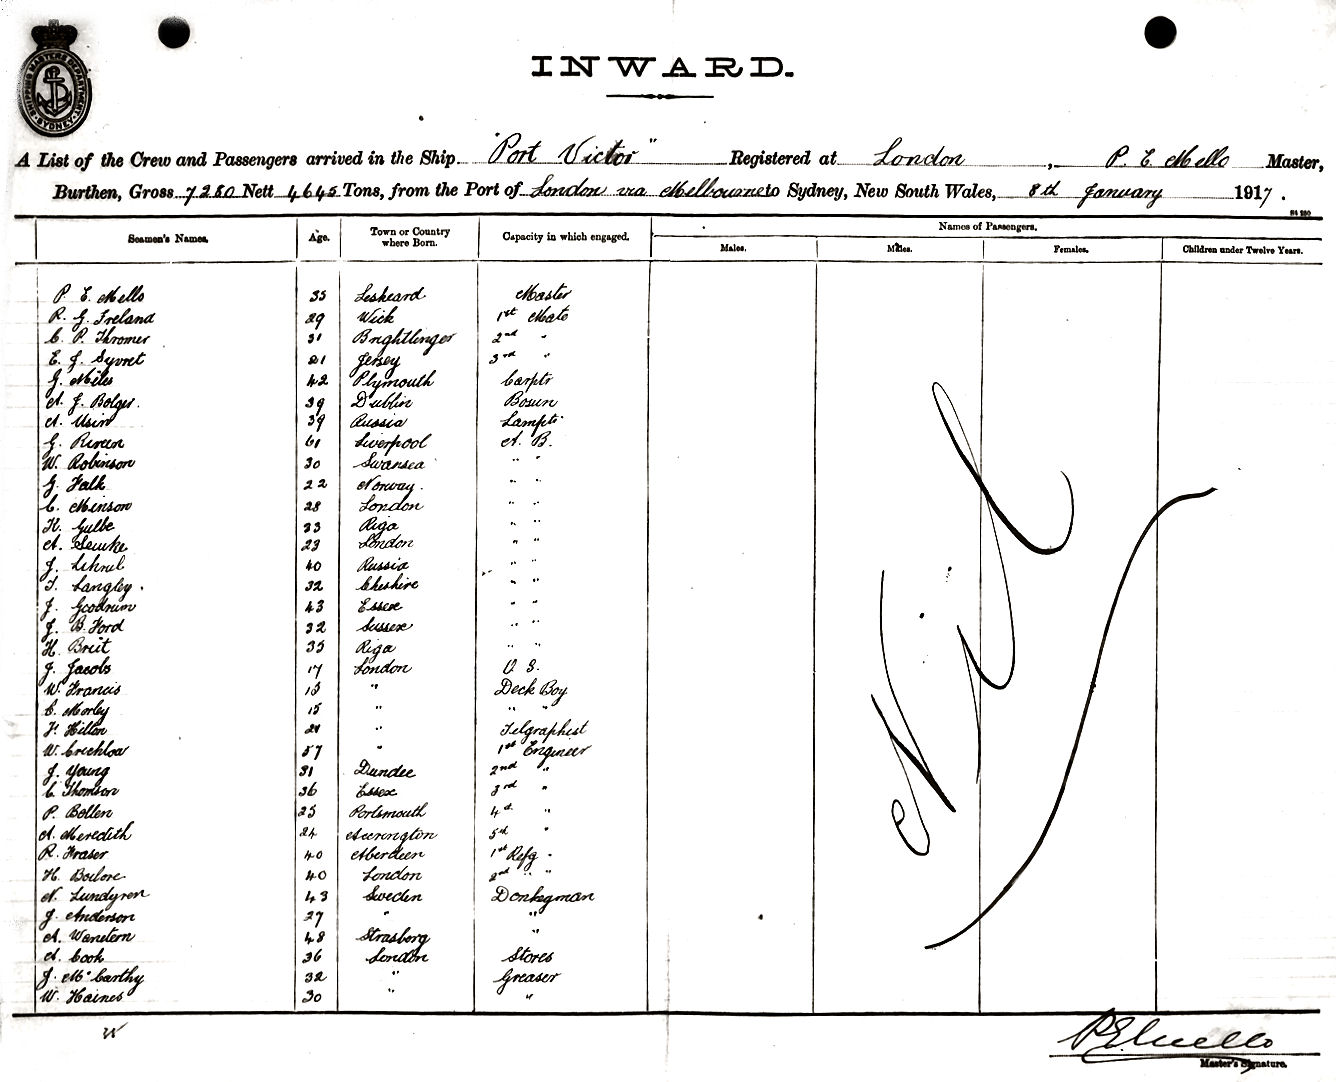 SHIPPING MASTERS DEPARTMENT SYDNEY
INWARD.
A List of the Crew and Passengers arrived in the Ship "Port Victor" Registered at London, P. E. Mello Master,
Burthen, Gross 7280 Nett 4645 Tons, from the Port of London via Melbourne to Sydney, New South Wales, 8th January 1917.
Seamen's Names. Age. Town or Country where Born. Capacity in which engaged. Names of Passengers.
Males. Males. Females. Children under Twelve Years.
P. E. Mello 35 Leskeard Master
R. G. Ireland 29 Wick 1st Mate
C. P. Thromer 31 Brightlinger 2nd "
E. J. Syvret 21 Jersey 3rd "
G. Miles 42 Plymouth Carptr
A. J. Bolger. 39 Dublin Bosun
A. Usin 39 Russia Lampts
G. 61 Liverpool A. B.
W. Robinson 30 Swansea " "
G. Falk 22 Norway. " "
C. Minson 28 London " "
K. Gulbe 33 Riga " "
A. 23 London " "
J. 40 Russia " "
T. Langley. 32 Cheshire " "
J. Goodrum 43 Essex " "
J. B. Ford 32 Sussex " "
H. Breit 35 Riga " "
J. Jacobs 17 London O S.
W. Francis 15 " Deck Boy
C. Morley 15 " " "
F. Hilton 21 " Telgraphist
W. Crichlow 57 " 1st Engineer
J. Young 31 Dundee 2nd "
C. Thomson 36 Essex 3rd "
P. Bollen 25 Portsmouth 4th "
A. Meredith 24 Accrington 5th "
R. Fraser 40 Aberdeen 1st Refg "
H. 40 London 2nd " "
N. Lundgren 43 Sweden Donkeyman
J. Anderson 27 " "
A. Wanstern 48 Strasborg "
A. Cook 36 London Stores
J. McCarthy 32 " Greaser
W. Haines 30 " "
Nil
P. E. Mello
Master's Signature.